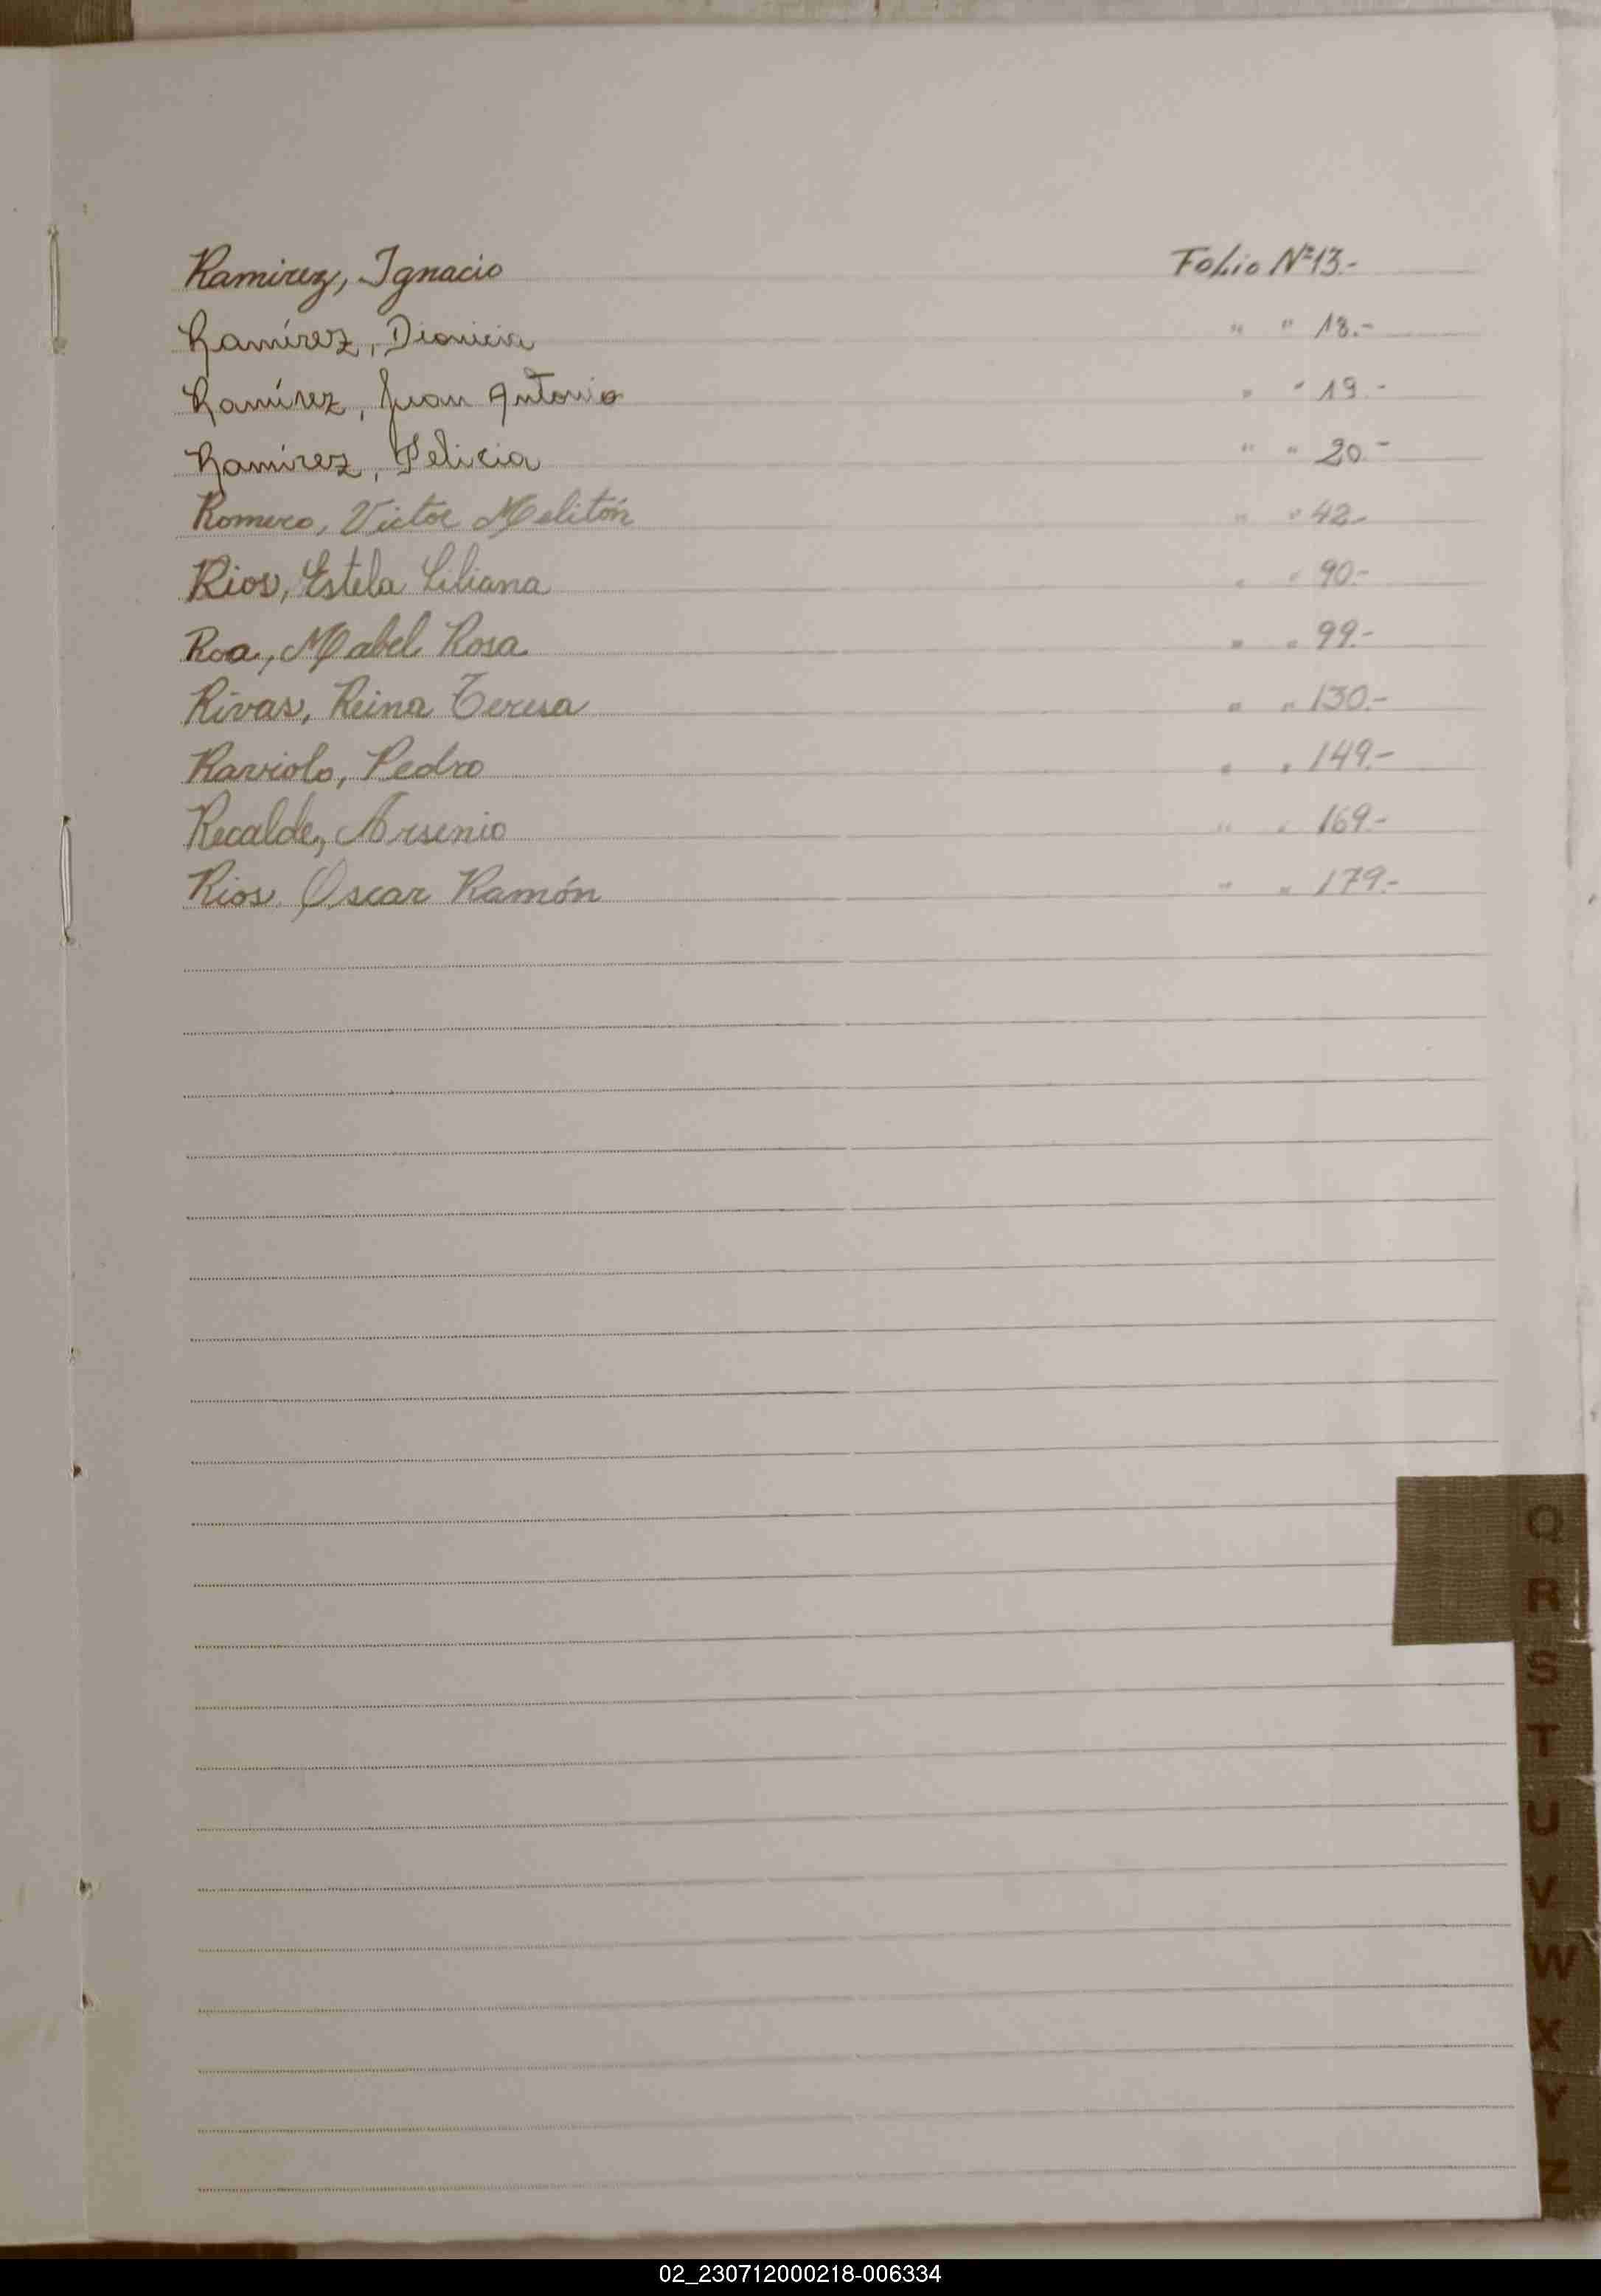 Ramirez, Ignacio Folio Nº 13.-
Ramírez, Dionicia " " 18.-
Ramírez, Juan Antonio " " 19.-
Ramírez, Felicia " " 20.-
Romero, Victor Melitón " " 42.-
Rios, Estela Liliana " " 90.-
Roa, Mabel Rosa " " 99.-
Rivas, Reina Teresa " " 130.-
Raviolo, Pedro " " 149.-
Recalde, Arsenio " " 169.-
Rios. Oscar Ramón " " 179.-
Q
R
S
T
U
V
W
X
Y
Z
02_230712000218-006334